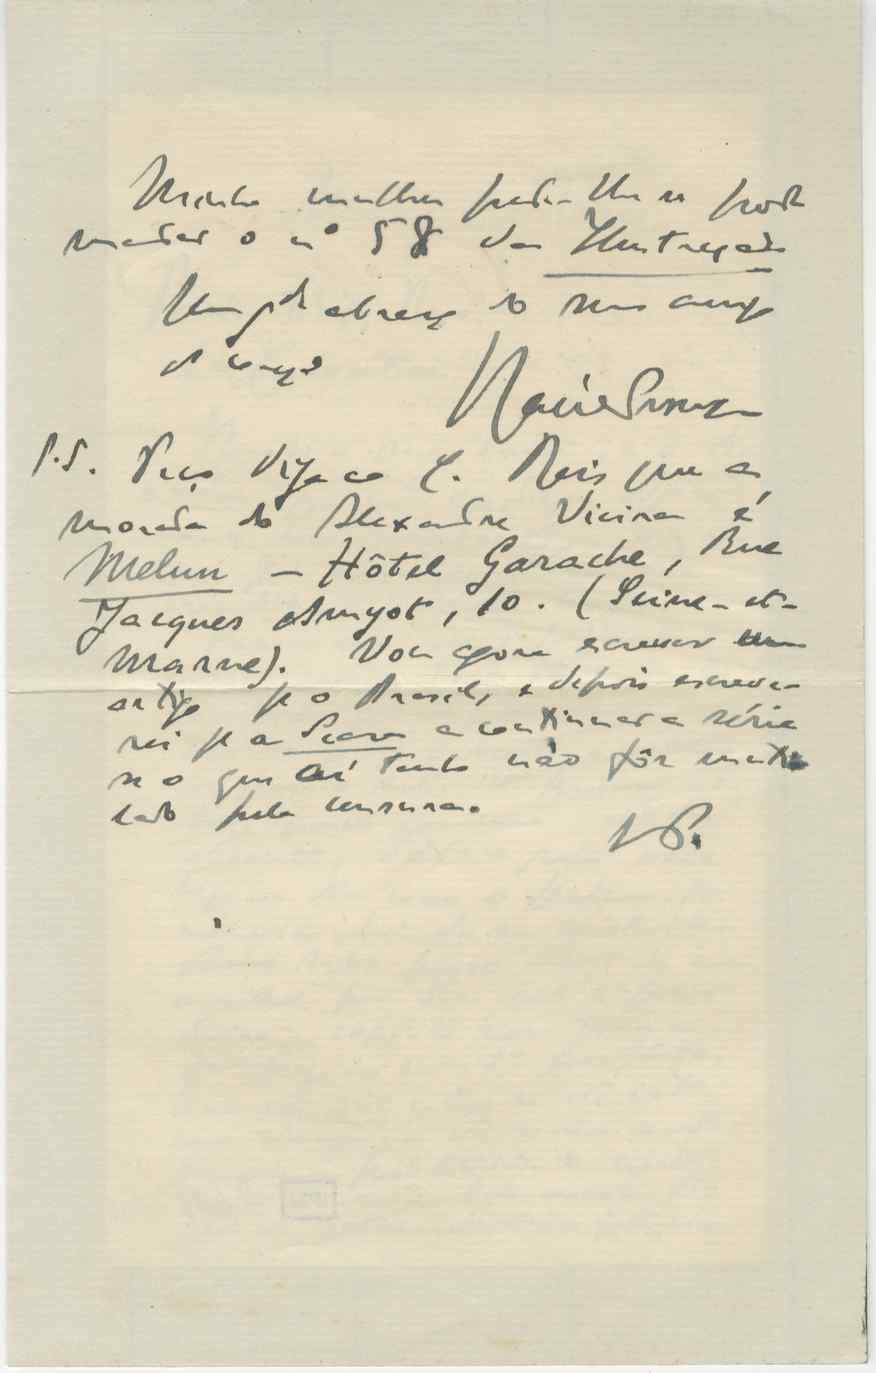 Minha mulher pede-lhe se pode
mandar o nº 58 da Ilustração
Um gde abraço do seu amigo
do coração
P.S. Peço diga ao C. Reis que a
morada do Alexandre Vieira é
Melun — Hôtel Garache, Rue
Jacques Amyot, 10. (Seine-et-
Marne). Vou agora escrever um
artigo p a o Brasil, e depois escreve-
rei p a a Seara a continuar a série
se o que aí tenho não fôr muti-
lado pela censura.